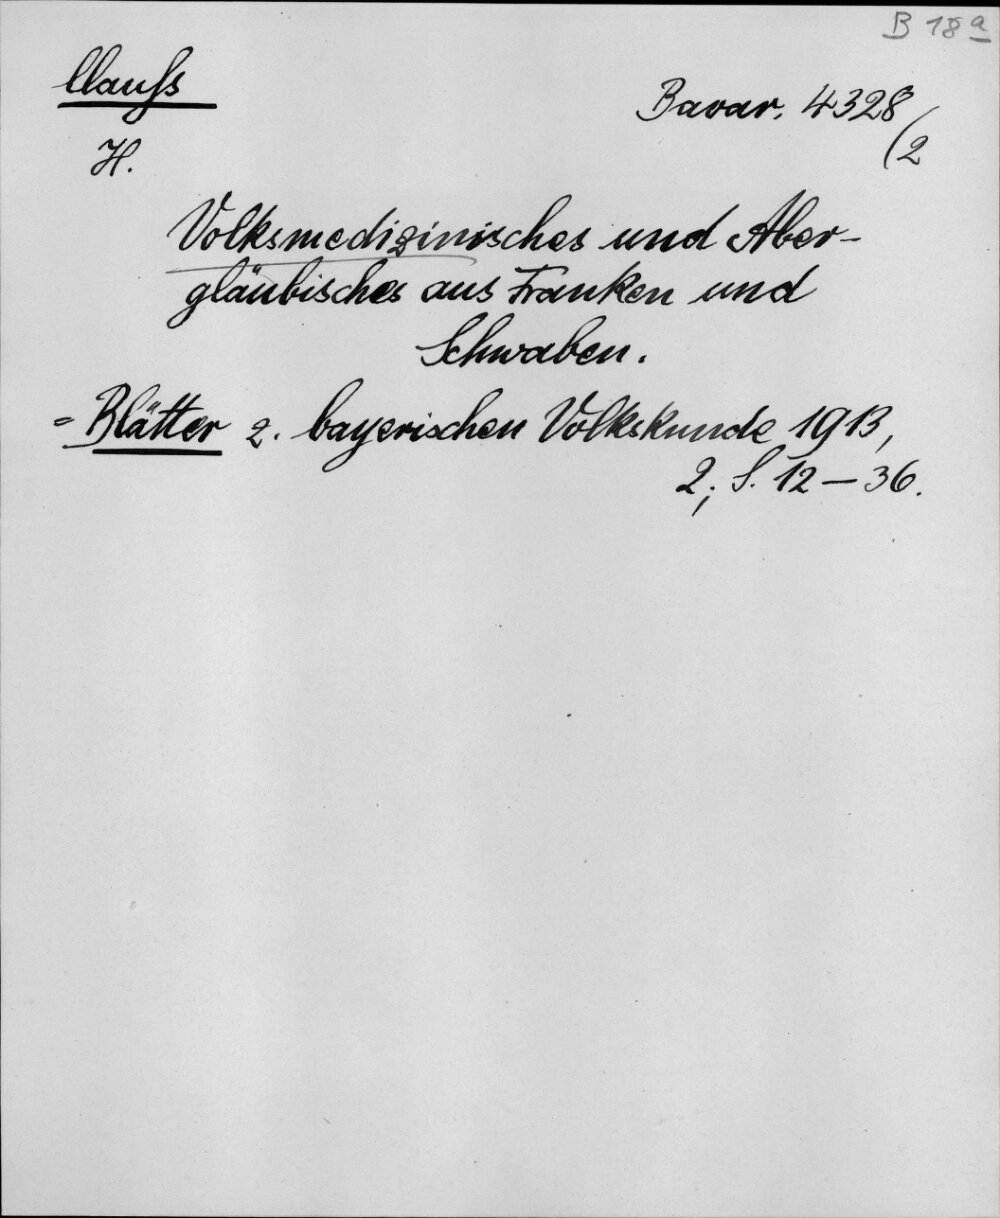 B 18 a
Clauß
Bavar. 4328
(2
H.
Volksmedizinisches und Aber-
gläubisches aus Franken und
Schwaben.
= Blätter z. bayerischen Volkskunde 1913,
2; S. 12 – 36.